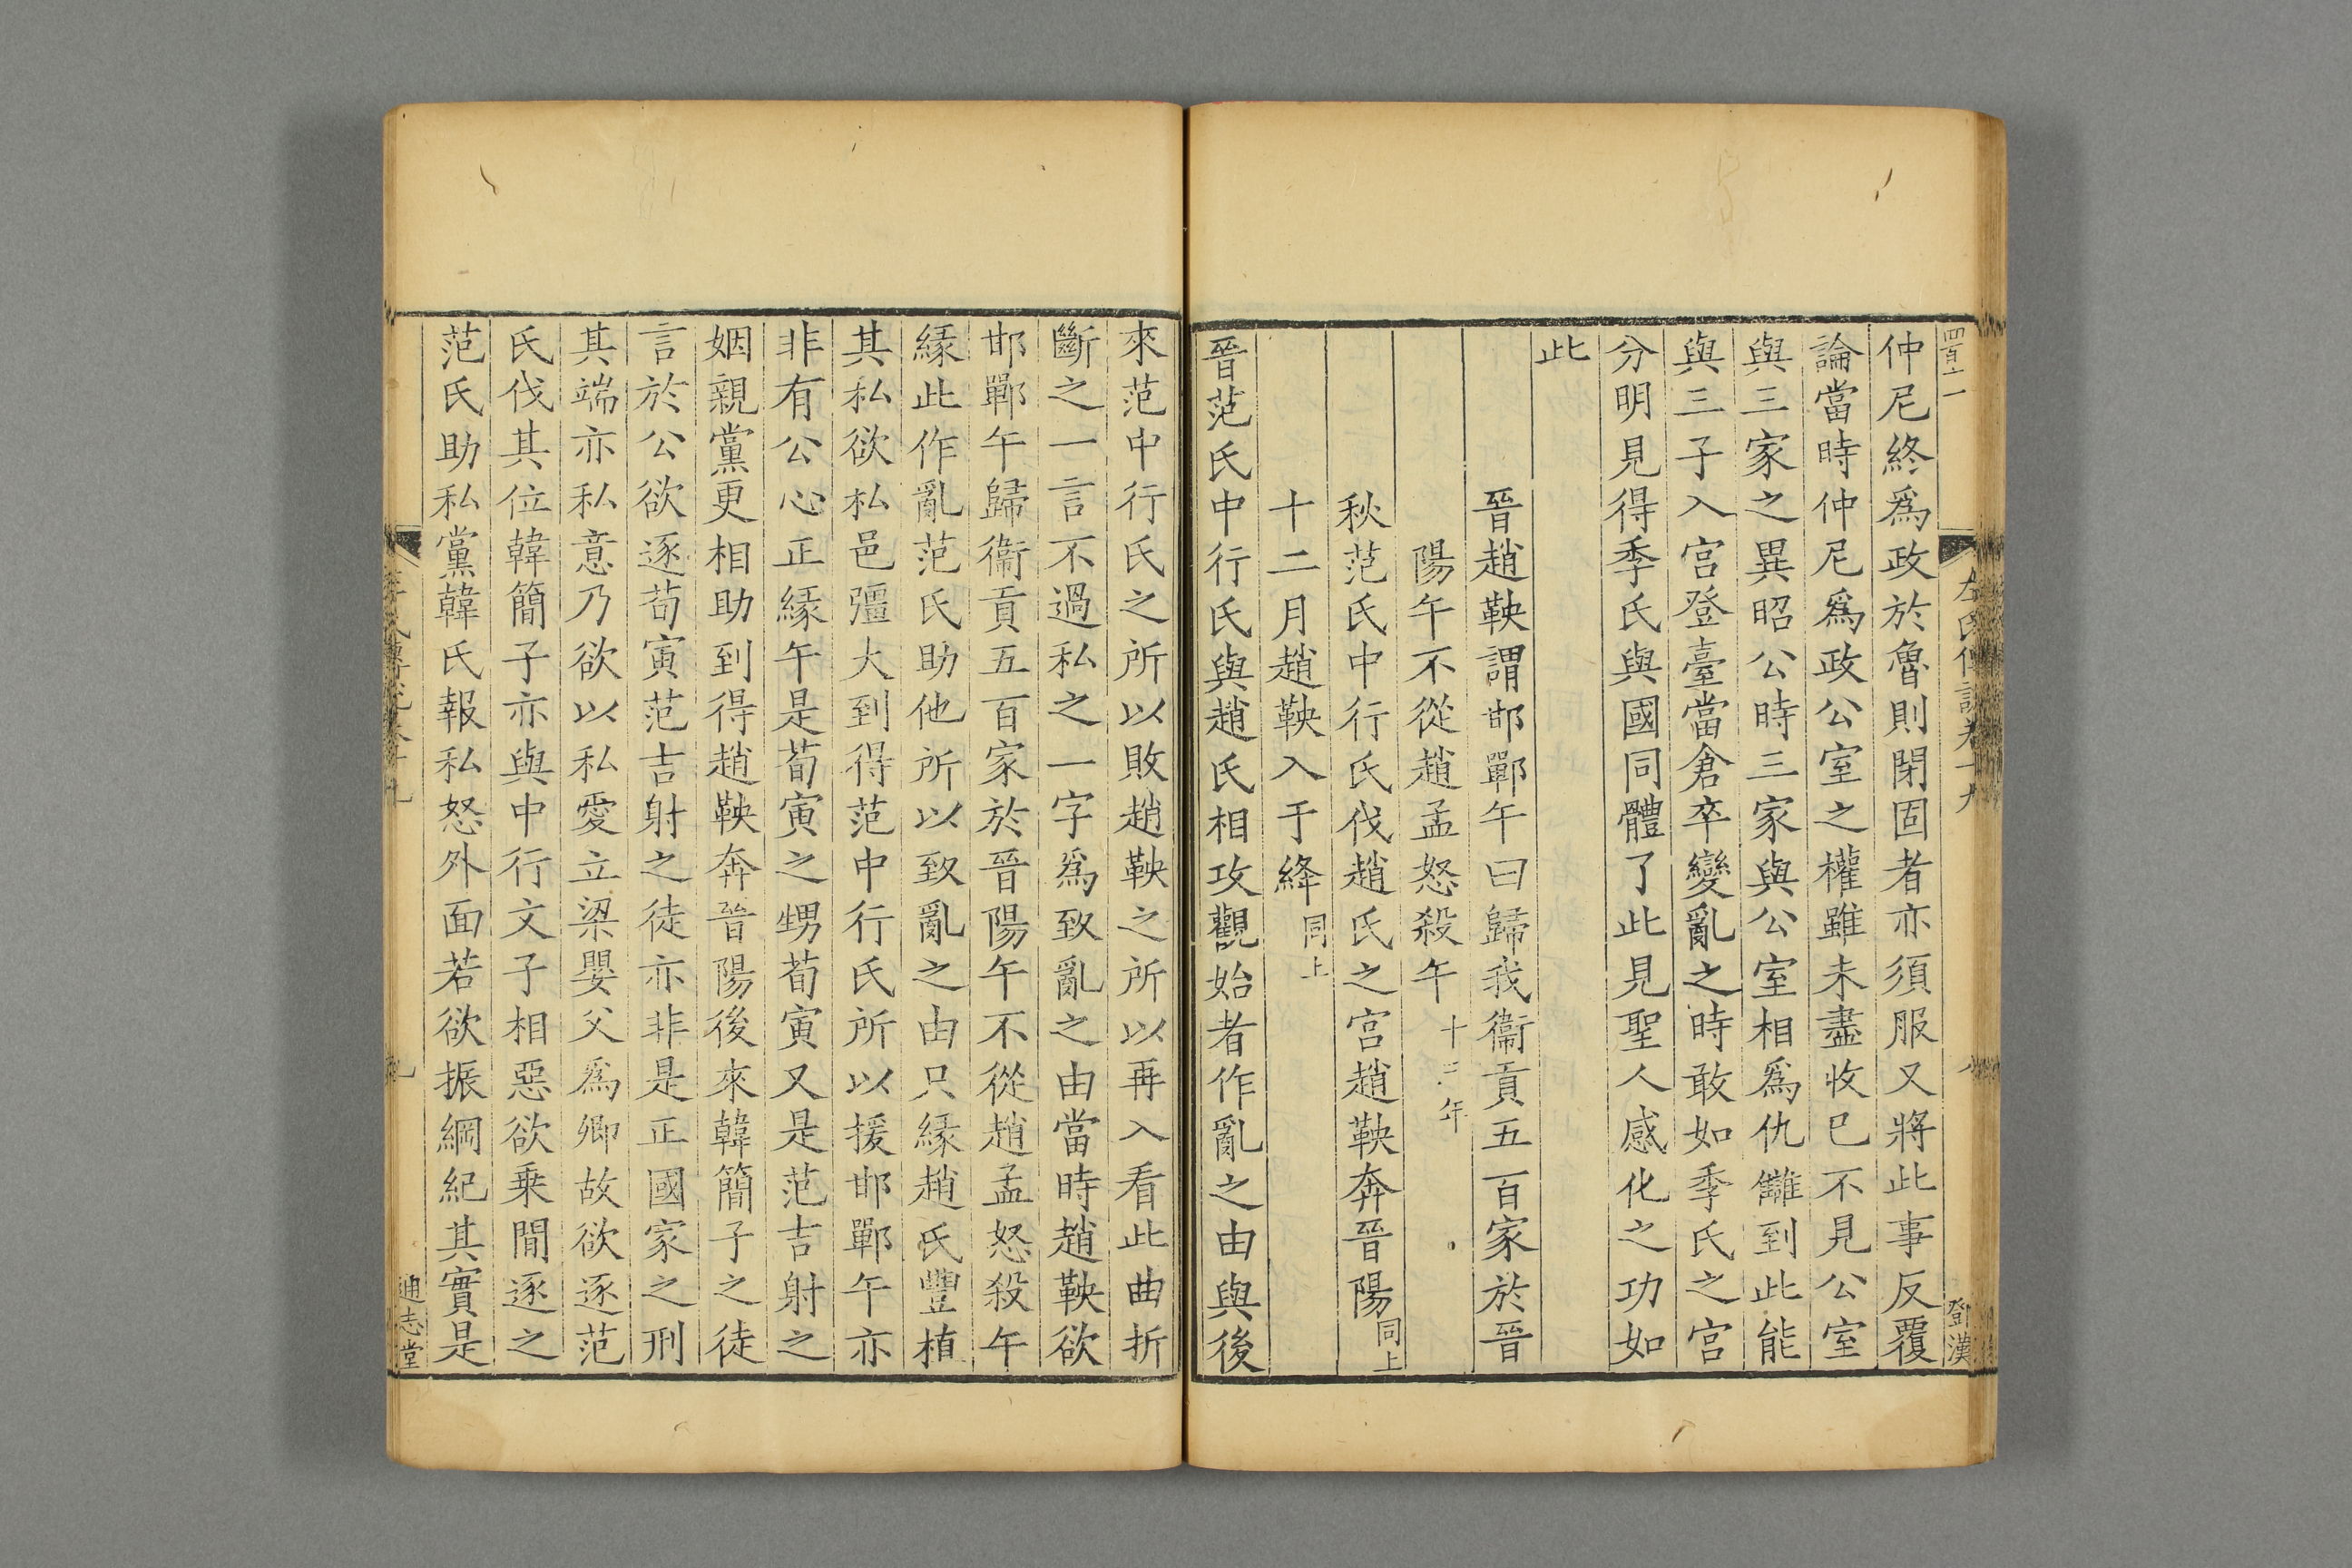 四百六一
左氏傳說卷十九
八
鄧漢
仲尼終爲政於魯則閉固者亦須服又將此事反覆
論當時仲尼爲政公室之權雖未盡收已不見公室
與三家之異昭公時三家與公室相爲仇讎到此能
與三子入宫登臺當倉卒變亂之時敢如季氏之宫
分明見得季氏與國同體了此見聖人感化之功如
此
晉趙鞅謂邯鄲午曰歸我衞貢五百家於晉
陽午不從趙孟怒殺午十三年
秋范氏中行氏伐趙氏之宫趙鞅奔晉陽同上
十二月趙鞅入于絳同上
晉范氏中行氏與趙氏相攻觀始者作亂之由與後
來范中行氏之所以敗趙鞅之所以再入看此曲折
斷之一言不過私之一字爲致亂之由當時趙鞅欲
邯鄲午歸衞貢五百家於晉陽午不從趙孟怒殺午
緣此作亂范氏助他所以致亂之由只緣趙氏豐植
其私欲私邑彊大到得范中行氏所以援邯鄲午亦
非有公心正緣午是荀寅之甥荀寅又是范吉射之
姻親黨更相助到得趙鞅奔晉陽後來韓簡子之徒
言於公欲逐荀寅范吉射之徒亦非是正國家之刑
其端亦私意乃欲以私愛立梁嬰父爲卿故欲逐范
氏伐其位韓簡子亦與中行文子相惡欲乗閒逐之
范氏助私黨韓氏報私怒外面若欲振綱紀其實是
通志堂